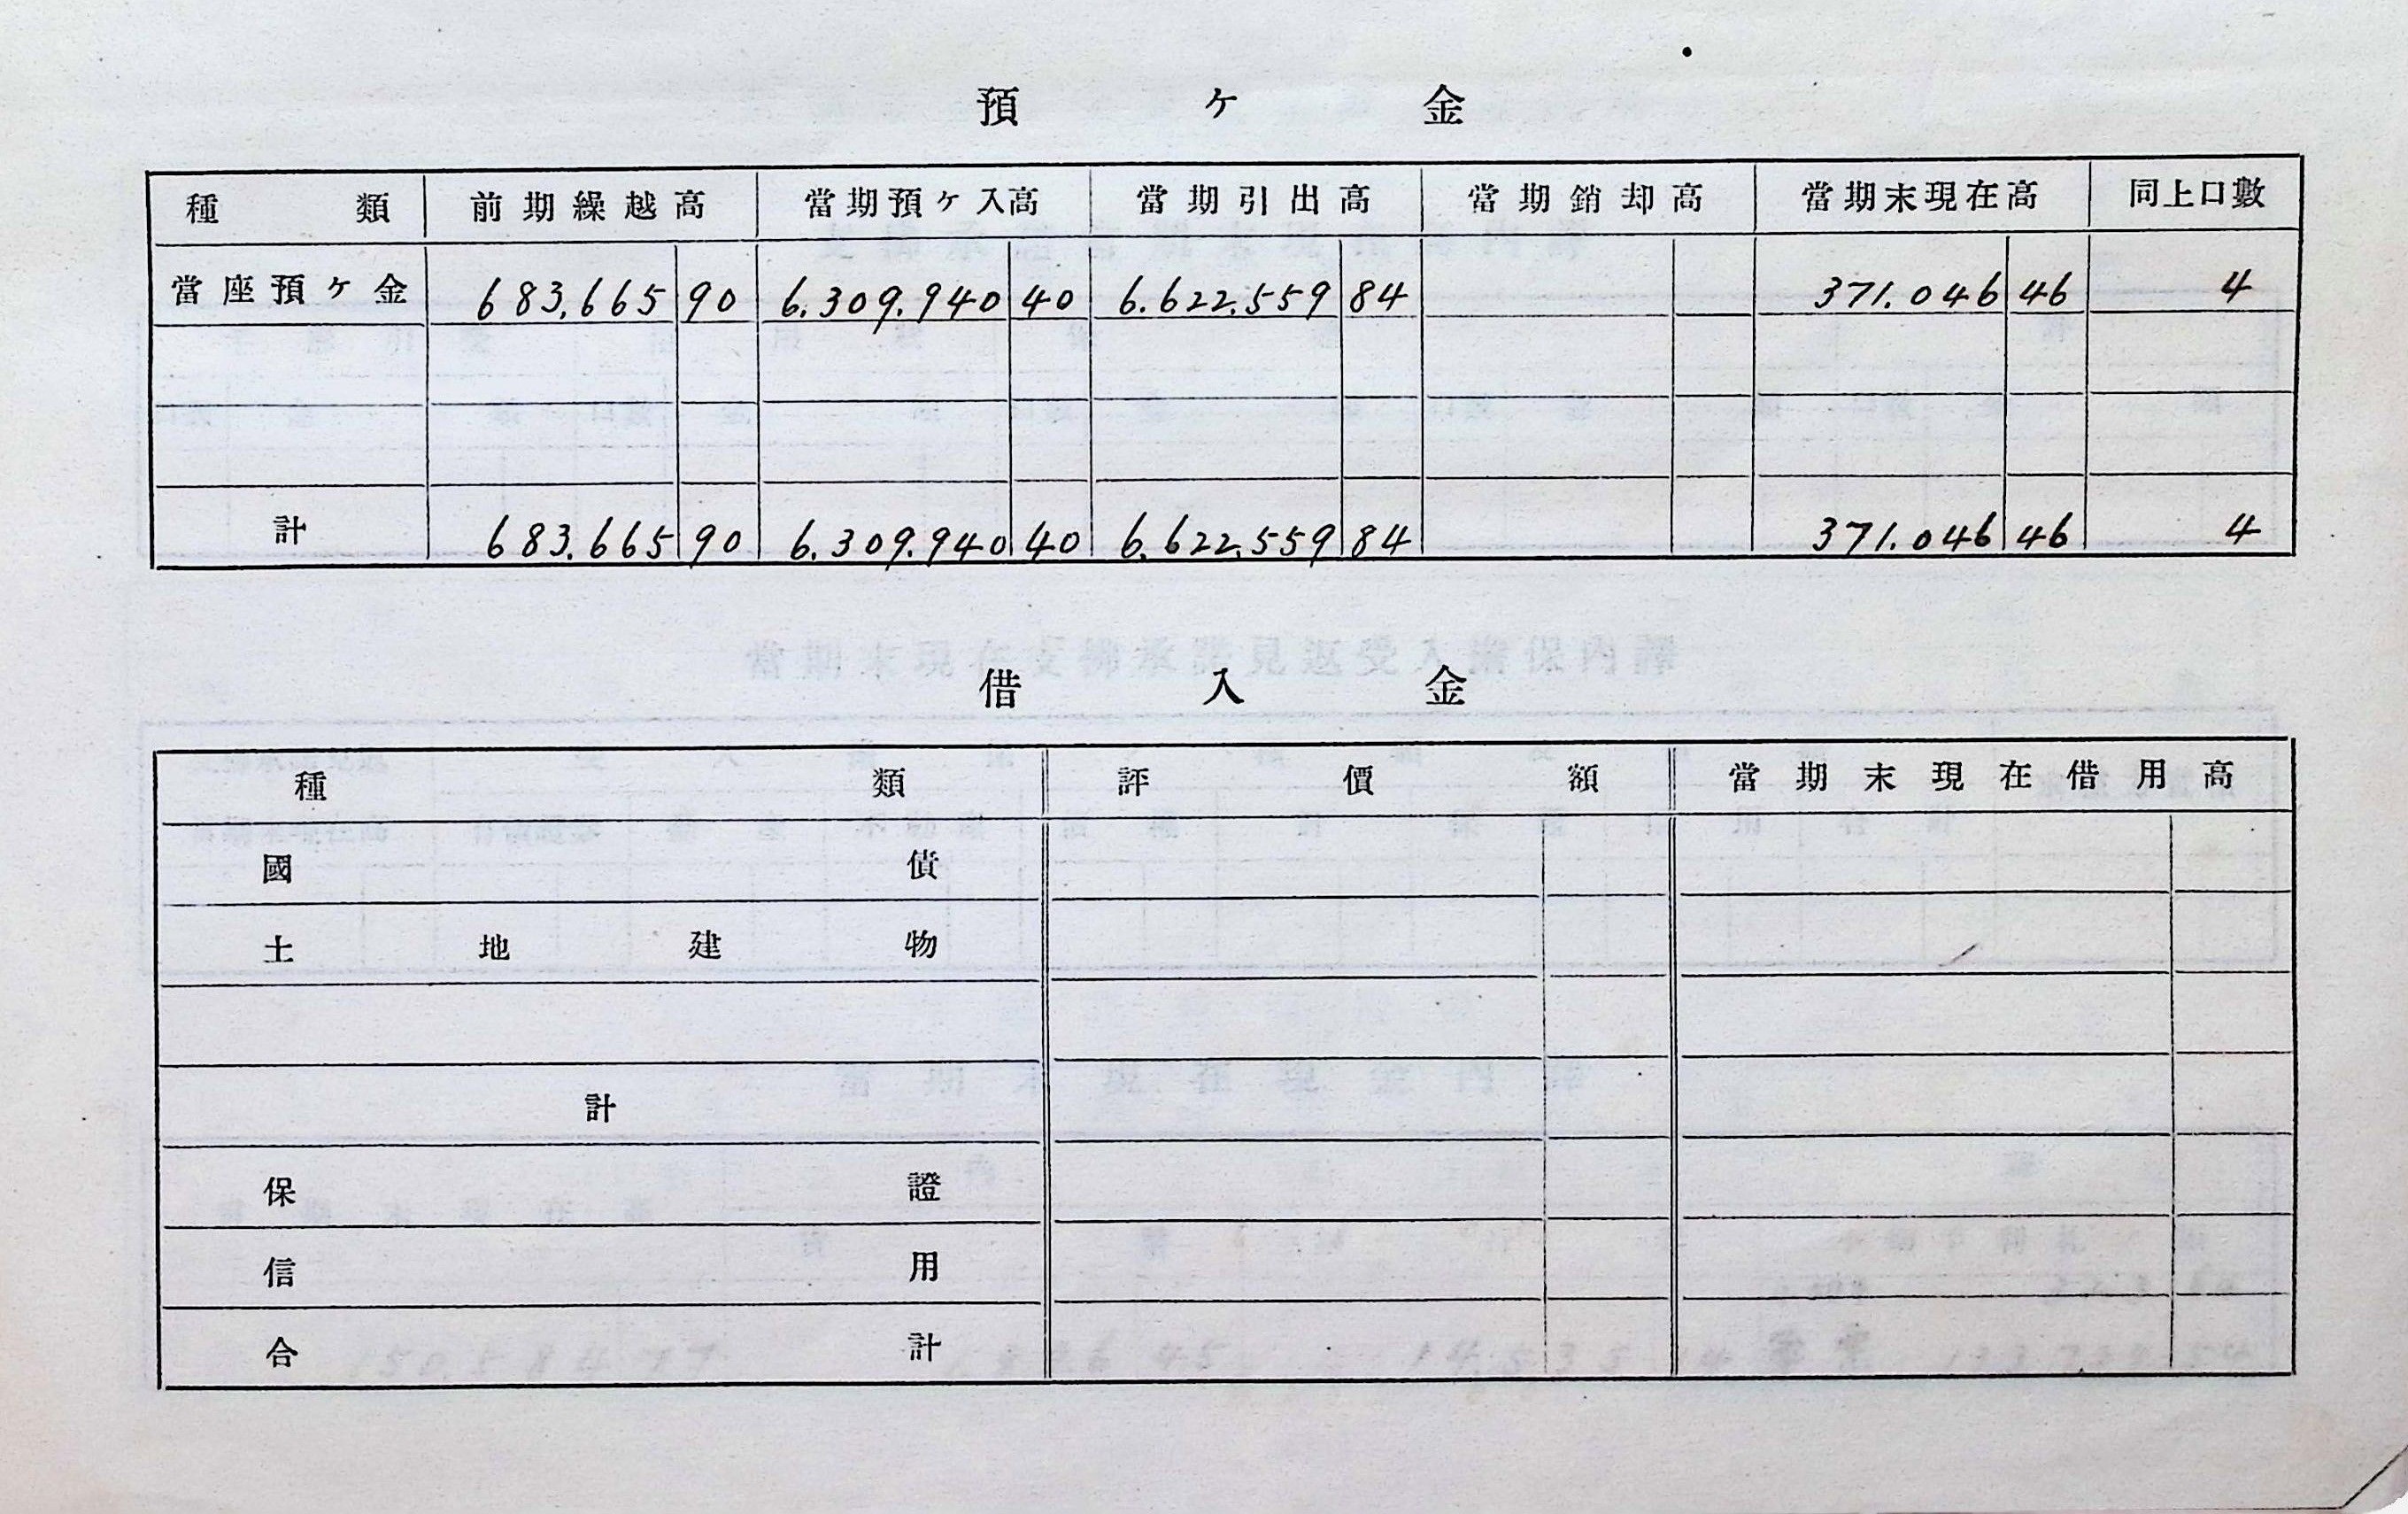 預ヶ金
種類 前期繰越高 當期預ヶ入高 當期引出高 當期銷却高 當期末現在高 同上口數
當座預ヶ金 683,665 90 6.309.940 40 6.622.559 84 371.046 46 4
計 683.665 90 6.309.940 40 6.622.559 84 371.046 46 4
借入金
種類 評價額 當期末現在借用高
國債
土地建物
計
保證
信用
合計